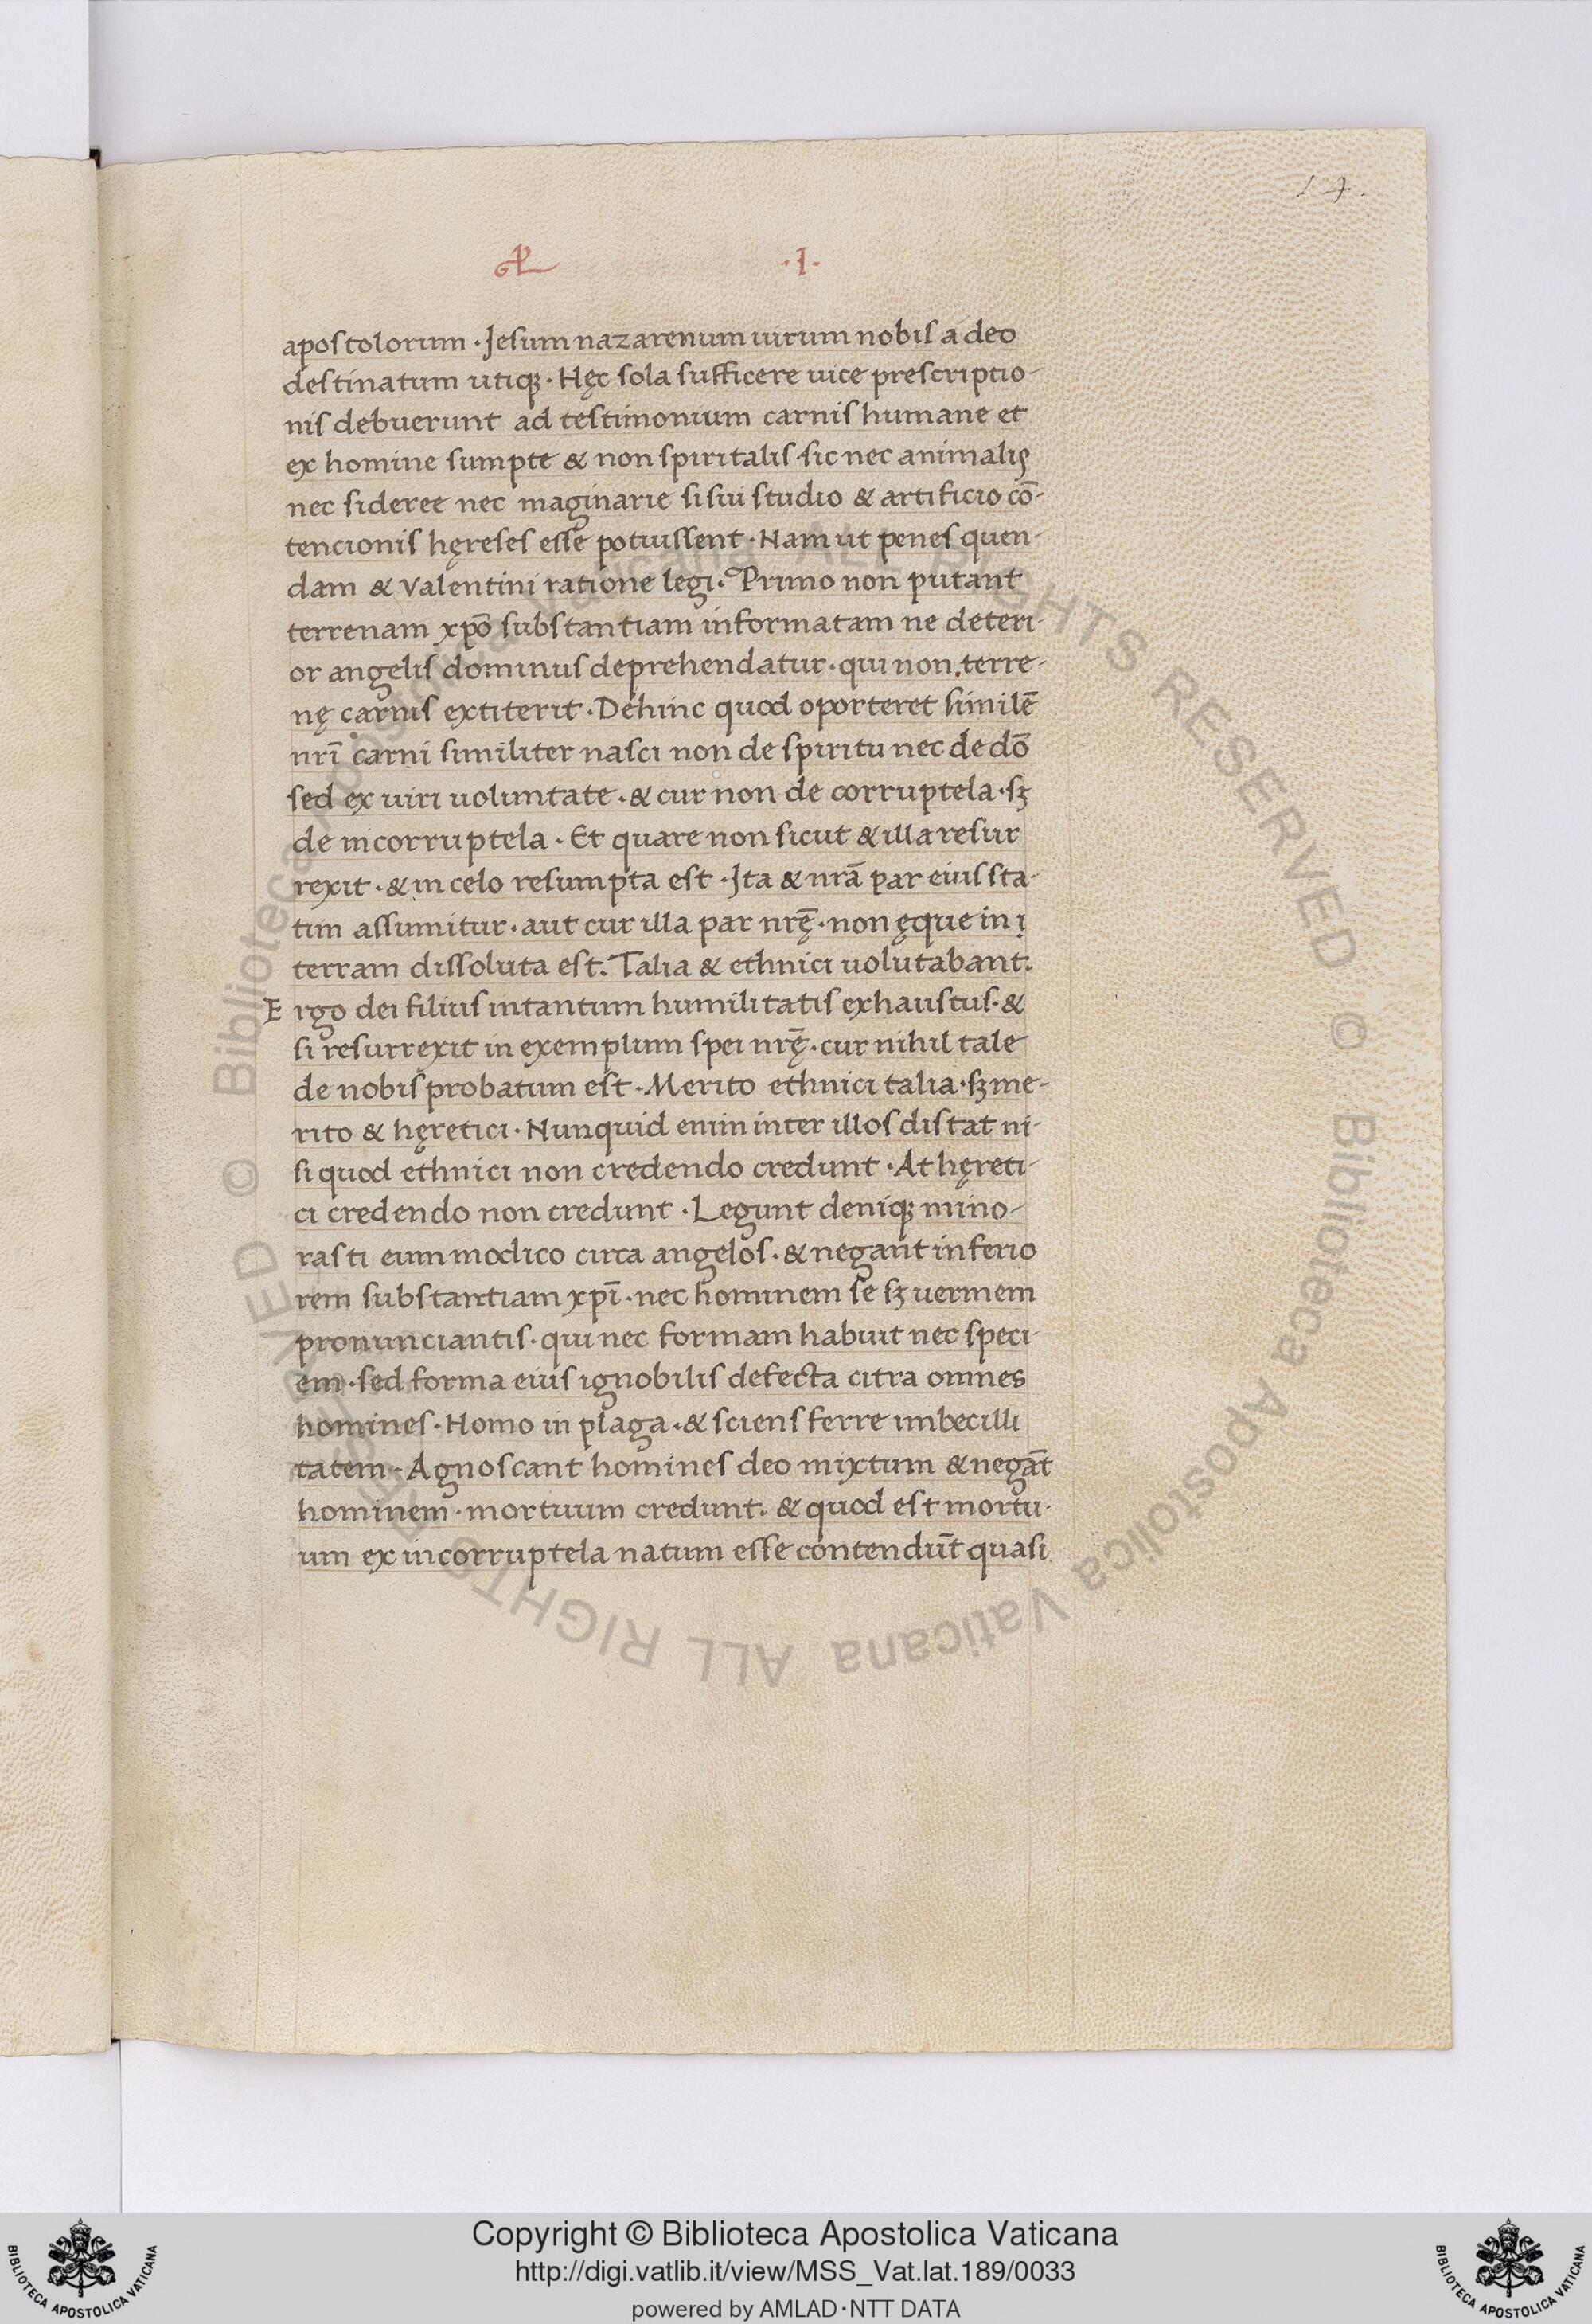 14.
·I·
apostolorum · Jesum nazarenum uirum nobis a deo
destinatum utiqꝫ · Hęc sola sufficere uice prescriptio-
nis debuerunt ad testimonium carnis humane et
ex homine sumpte & non spiritalis sic nec animalis
nec sideree nec maginarie si siui studio & artificio cō-
tencionis hęreses esse potuissent · Nam ut penes quen-
dam & Valentini ratione legi · Primo non putant
terrenam xp̄o substantiam informatam ne deteri-
or angelis dominus deprehendatur · qui non terre-
nę carnis extiterit · Dehinc quod oporteret similē
nr̄i carni similiter nasci non de spiritu nec de dō
sed ex uiri uoluntate · & cur non de corruptela · sꝫ
de incorruptela · Et quare non sicut & illa resur
rexit · & in celo resumpta est · Ita & nrā par eius sta-
tim assumitur · aut cur illa par nrę̄ · non ęque in i
terram dissoluta est. Talia & ethnici uolutabant.
Ergo dei filius intantum humilitatis exhaustus · &
si resurrexit in exemplum spei nrę̄ · cur nihil tale
de nobis probatum est · Merito ethnici talia · sꝫ me-
rito & hęretici · Nunquid enim inter illos distat ni-
si quod ethnici non credendo credunt · At hęreti-
ci credendo non credunt · Legunt deniqꝫ mino-
rasti eum modico circa angelos · & negant inferio
rem substantiam xp̄i · nec hominem se sꝫ uermem
pronunciantis · qui nec formam habuit nec speci-
em · sed forma eius ignobilis defecta citra omnes
homines · Homo in plaga · & sciens ferre imbecilli
tatem · Agnoscant homines deo mixtum & negāt
hominem · mortuum credunt · & quod est mortu-
um ex incorruptela natum esse contendūt quasi
© Biblioteca Apostolica Vaticana ALL RIGHTS RESERVED © Biblioteca Apostolica Vaticana ALL RIGHTS RESERVED
Copyright © Biblioteca Apostolica Vaticana
http://digi.vatlib.it/view/MSS_Vat.lat.189/0033
powered by AMLAD·NTT DATA
BIBLIOTECA APOSTOLICA VATICANA
BIBLIOTECA APOSTOLICA VATICANA